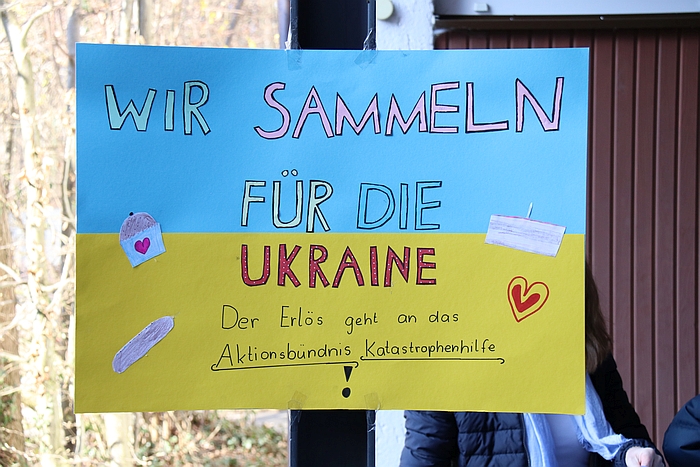 WIR SAMMELN
FÜR DIE
UKRAINE
Der Erlös geht an das
Aktionsbündnis Katastrophenhilfe
!